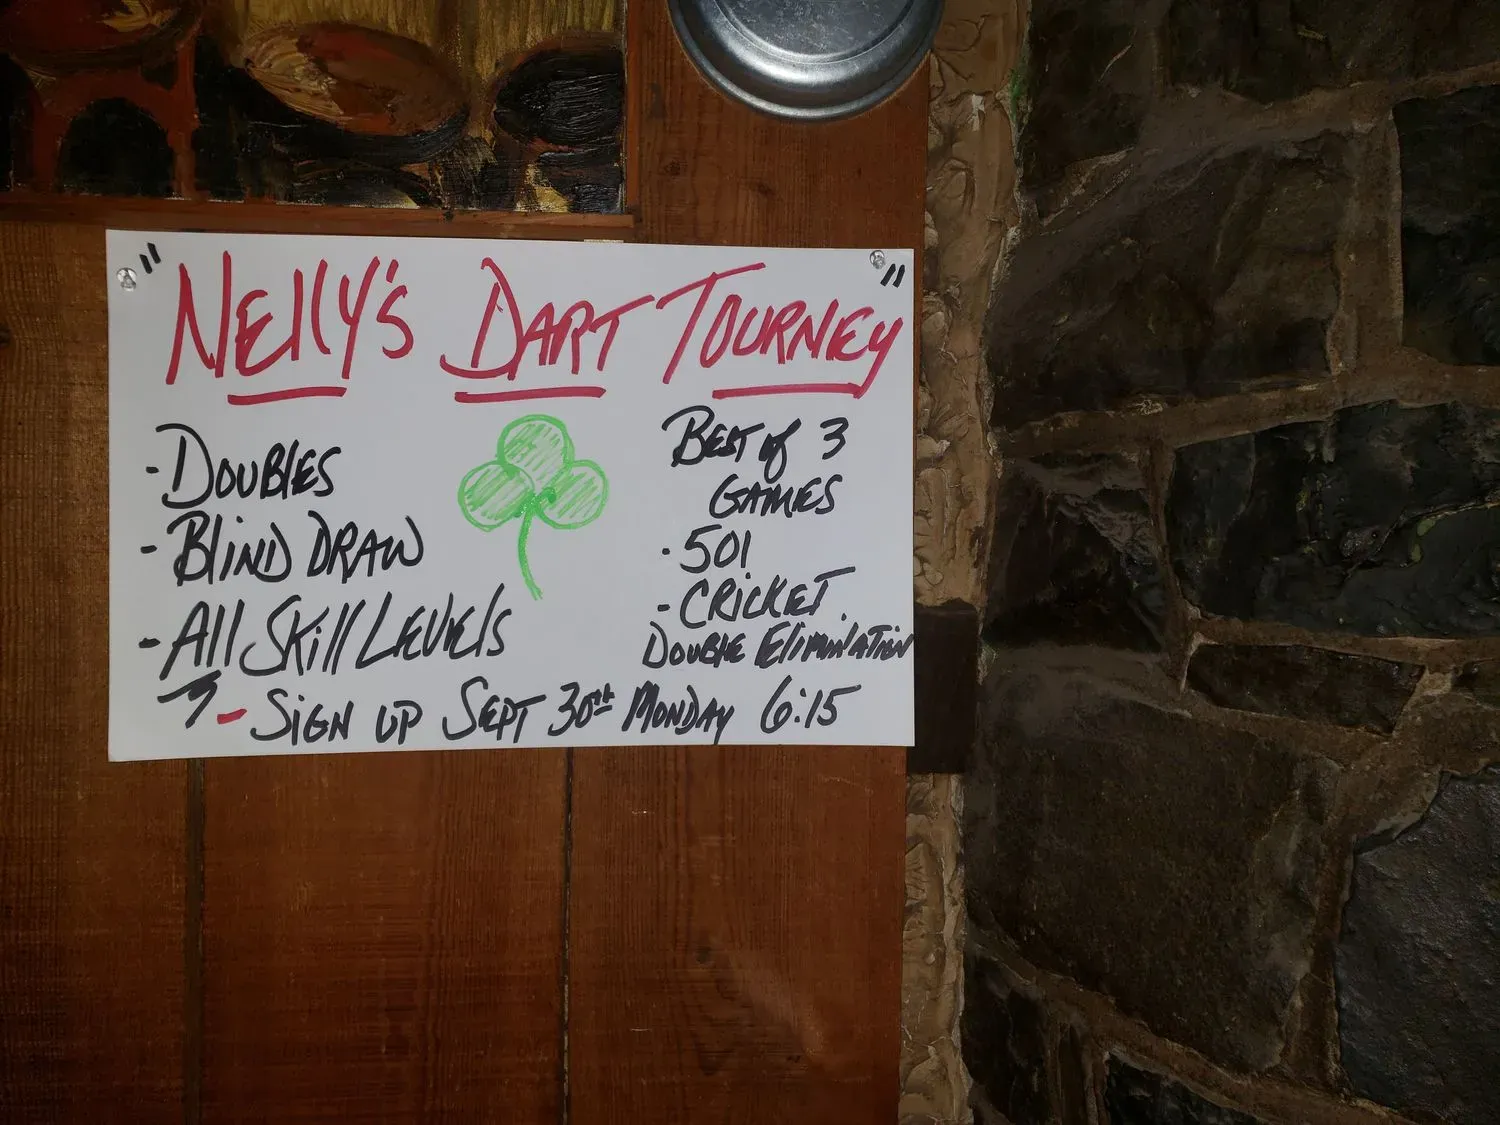 "Nelly's Dart Tourney"
- Doubles
- Blind Draw
- All Skill Levels
Best of 3
Games
- 501
- Cricket
Double Elimination
- Sign up Sept 30th Monday 6:15